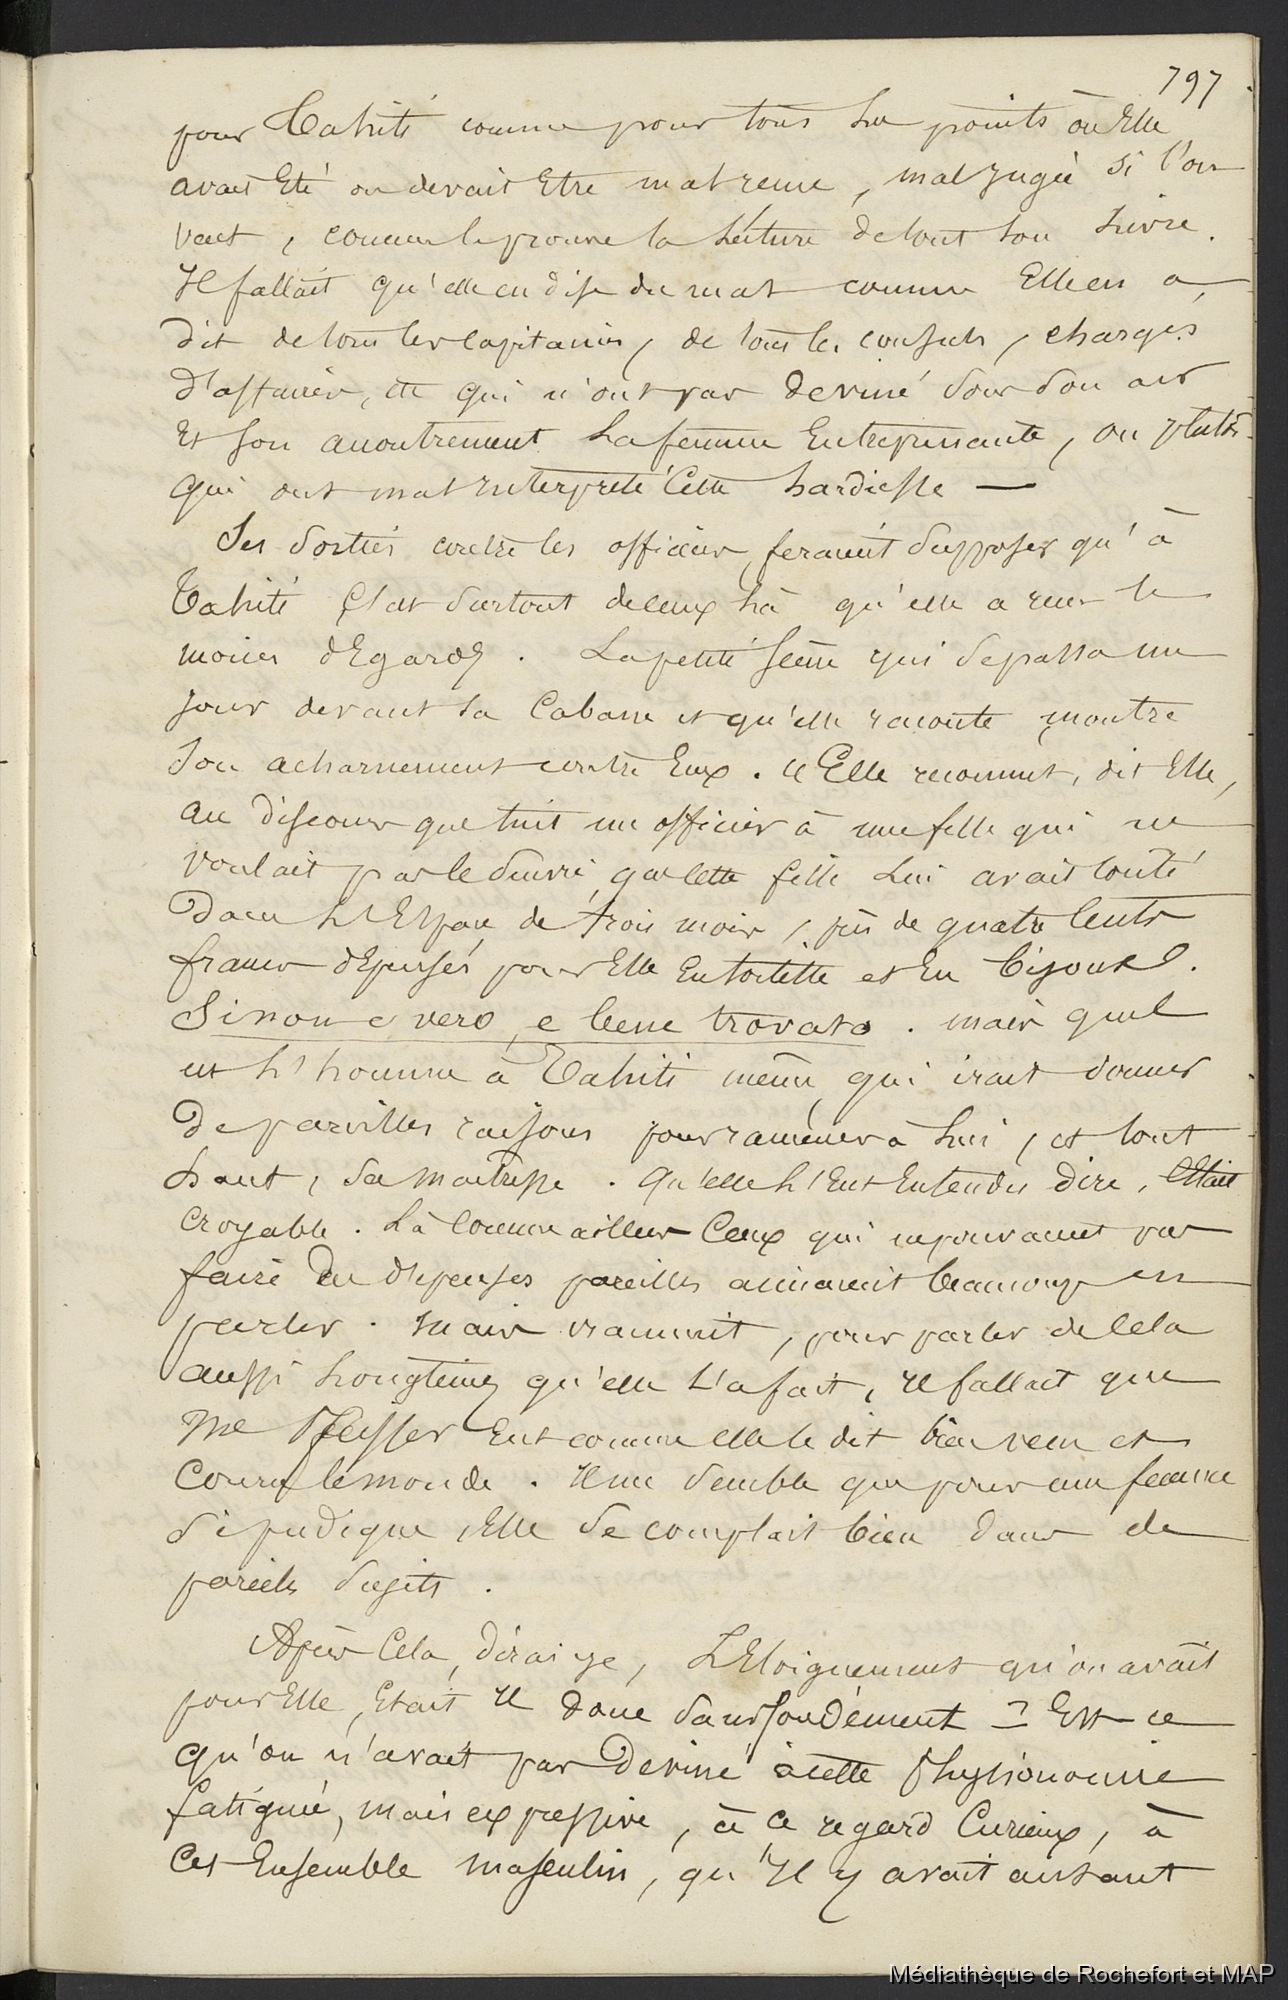 797
pour Tahiti comme pour tous les points où Elle
avait Eté ou devait Etre mal reçue, mal jugée si l'on
veut, comme le prouve la Lecture de tout son Livre.
Il fallait qu'elle en dise du mal comme Elle en a
dit de tous les Capitaines, de tous les consuls, chargés
d'affaires, etc qui n'ont pas deviné sous son air
Et son accoutrement La femme Entreprenante, ou plutôt
qui ont mal interprêté Cette hardiesse —
Ses sorties contre les officiers, feraient supposer qu'à
Tahiti C'est surtout de Ceux Là qu'elle a reçu le
moins d'Egards. La petite Scène qui se passa un
jour devant sa Cabane et qu'elle raconte montre
son acharnement contre Eux. "Elle reconnut, dit Elle,
au discours que tint un officier à une fille qui ne
voulait pas le suivre, que Cette fille Lui avait Couté
dans L'Espace de trois mois, près de quatre Cents
francs dépensés pour Elle En toilette et En bijoux.
Si non e vero, e bene trovato. mais quel
est L'homme à Tahiti même, qui irait donner
de pareilles raisons pour ramener à Lui, et tout
haut, sa maitresse. Qu'elle L'Eut Entendu dire, C'Etait
croyable. Là Comme ailleurs Ceux qui ne pouvaient pas
faire des dépenses pareilles aimaient beaucoup en
parler. Mais vraiment, pour parler de Cela
aussi Longtems qu'elle L'a fait, il fallait que
Me Pfeiffer Eut comme elle le dit bien vécu et
Couru le monde. Il me semble que pour une femme
si pudique, Elle se complait bien dans de
pareils sujets.
Après Cela, dirai-je, L'Eloignement qu'on avait
pour Elle, Etait Il donc sans fondement ? Est-ce
qu'on n'avait pas deviné à cette Physionomie
fatiguée, mais expressive, à ce regard Curieux, à
Cet Ensemble masculin, qu'Il y avait autant
Médiathèque de Rochefort et MAP